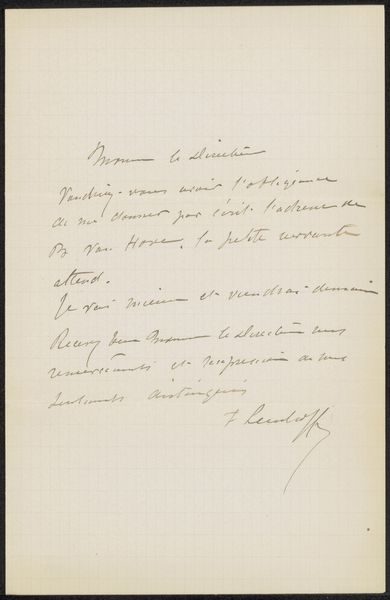 Monsieur le Directeur
Voudriez-vous avoir l'obligeance
de me donner par écrit l'adresse de
Van Hove. la petite servante
attend.
Je vais mieux et viendrai demain
Recevez Monsieur le Directeur mes
remerciements et l'expression de mes
sentiments distingués